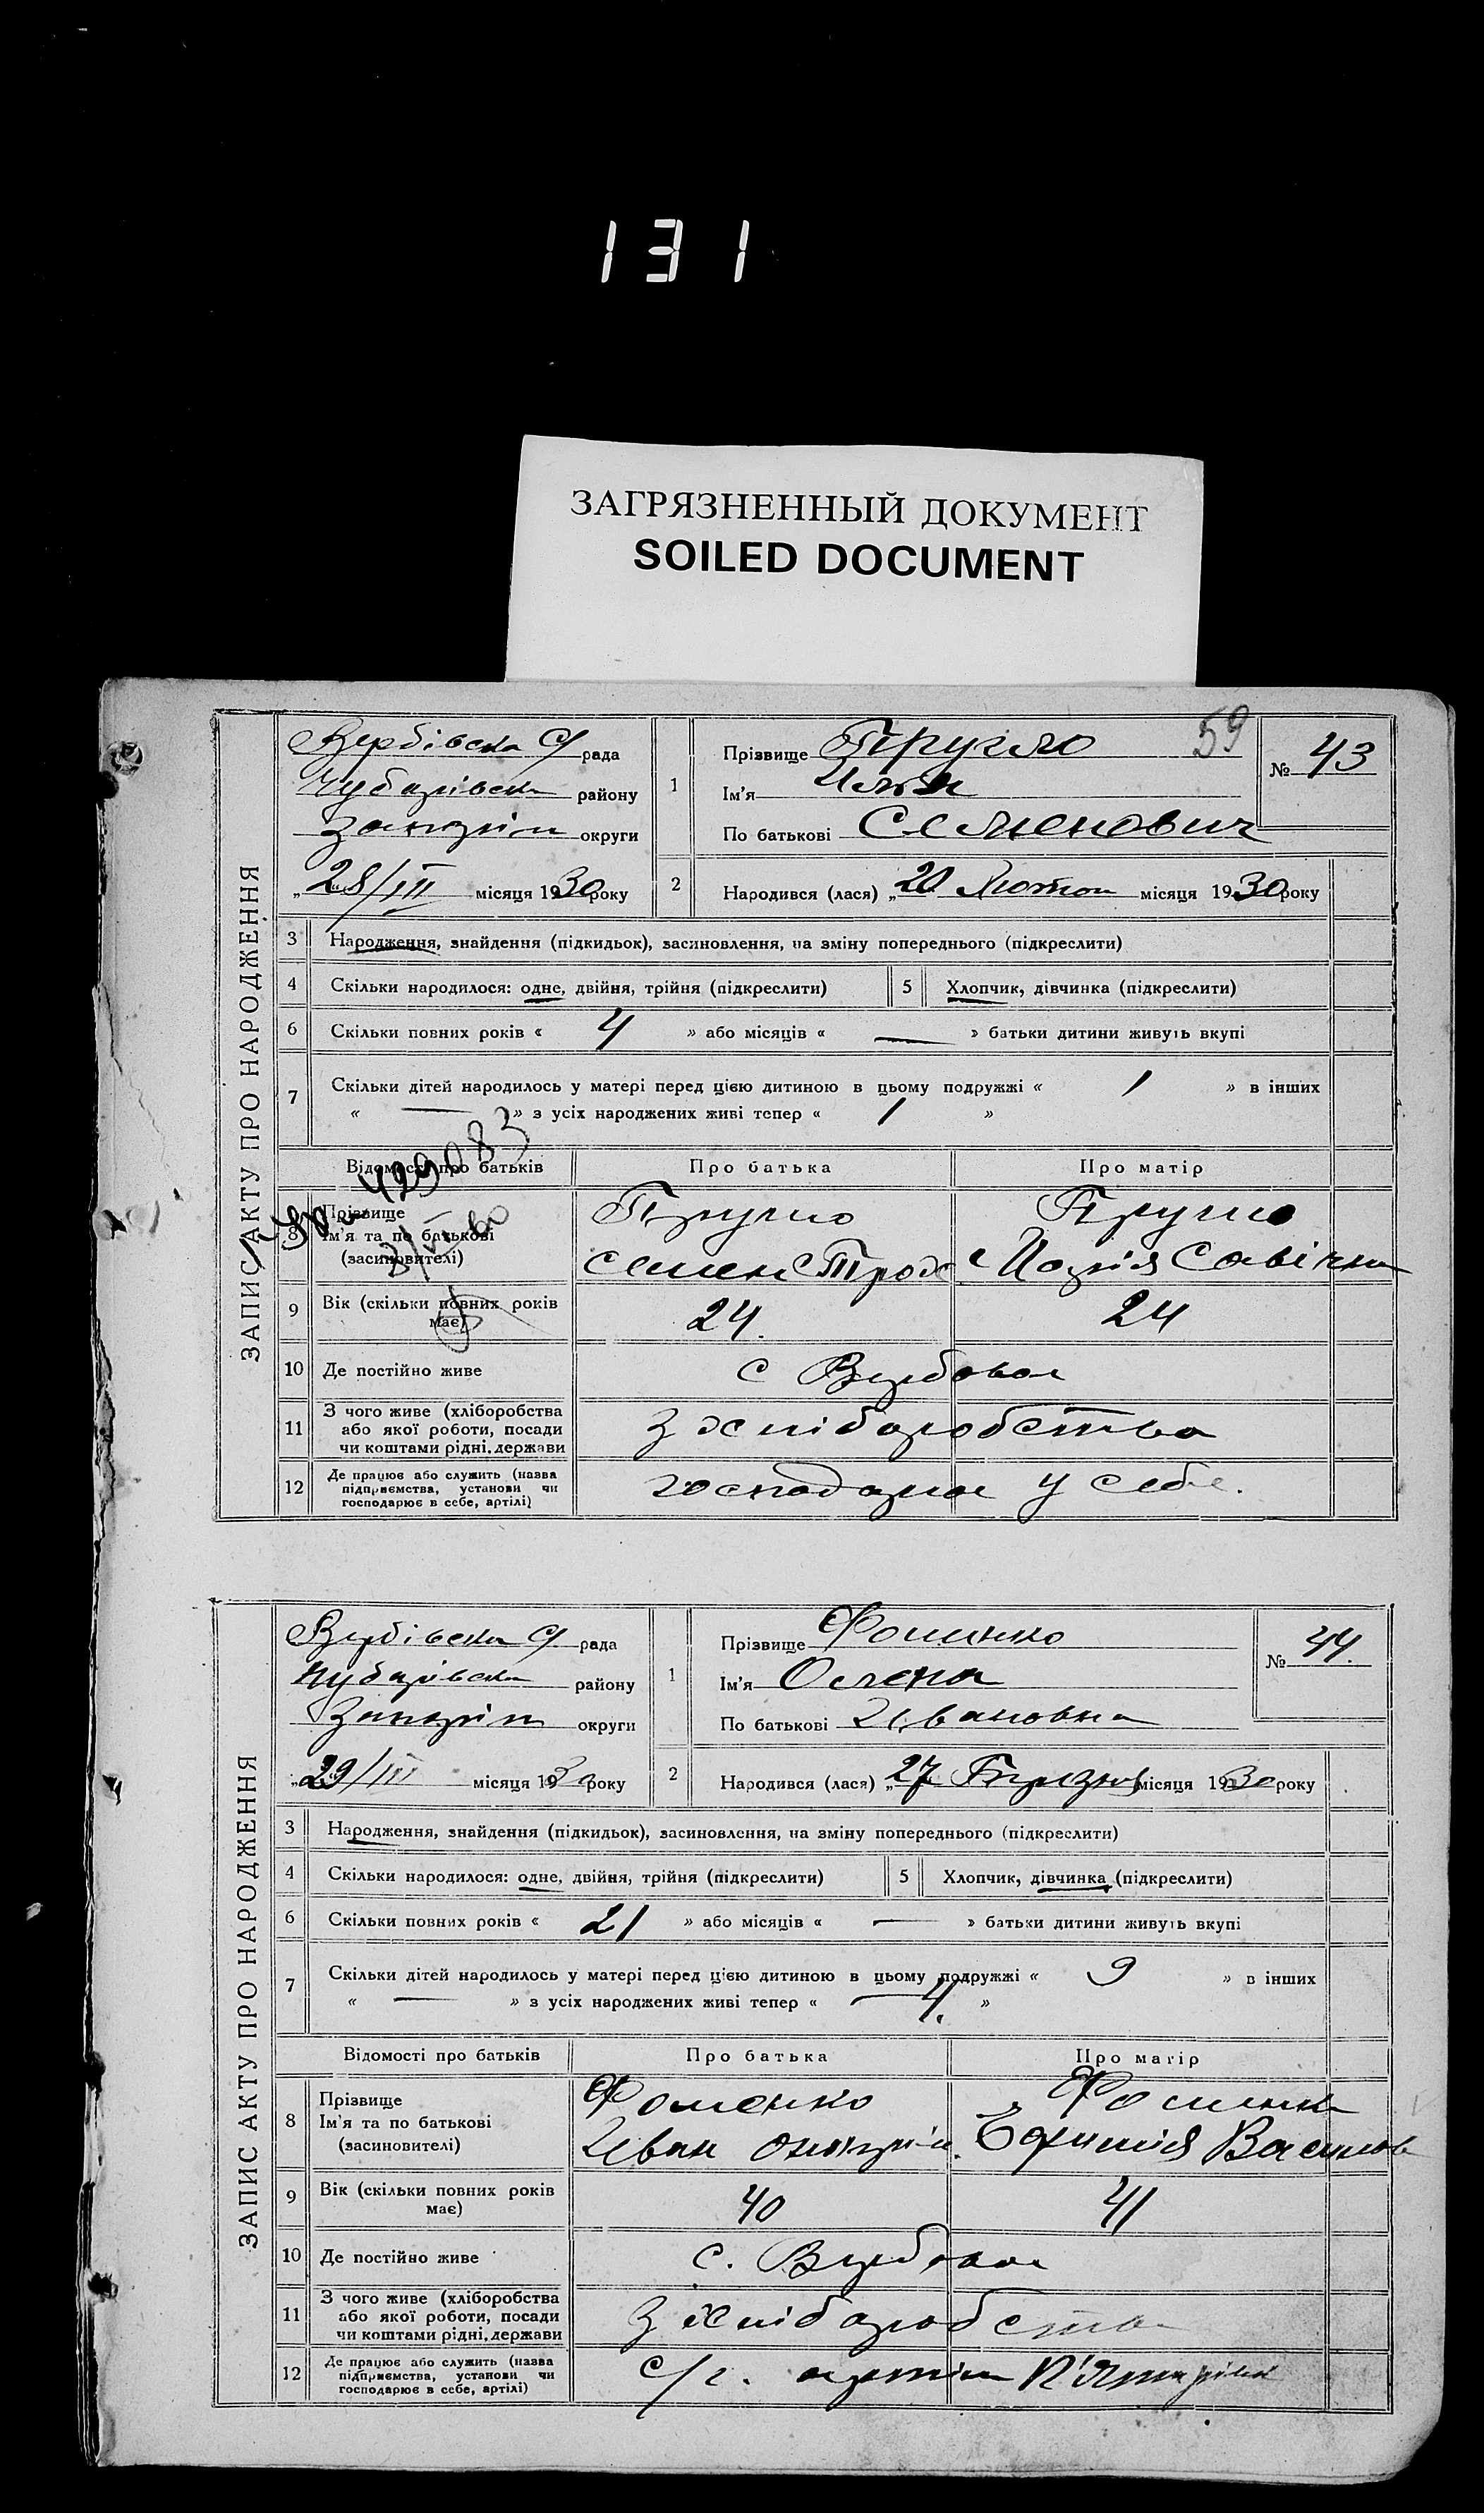 131
ЗАГРЯЗНЕННЫЙ ДОКУМЕНТ
SOILED DOCUMENT
59
ЗАПИС АКТУ ПРО НАРОДЖЕННЯ
Вербівська С/ рада
Чубарівськ району
Запоріж округи
„28/III місяця 1930 року
1 Прізвище Пругло
Ім'я Ілля
По батькові Семенович
№ 43
2 Народився (лася) „20 Лютого місяця 1930 року
3 Народження, знайдення (підкидьок), засиновлення, на зміну попереднього (підкреслити)
4 Скільки народилося: одне, двійня, трійня (підкреслити) 5 Хлопчик, дівчинка (підкреслити)
6 Скільки повних років « 4 » або місяців « — » батьки дитини живуть вкупі
7 Скільки дітей народилось у матері перед цією дитиною в цьому подружжі « 1 » в інших
« — » з усіх народжених живі тепер « 1 »
429083
Відомості про батьків Про батька Про матір
8 Прізвище
Ім'я та по батькові
(засиновителі)
Пругло
Семен Троф
Пругло
Марія Савічна
9 Вік (скільки повних років має) 24. 24
10 Де постійно живе с Вербове
11 З чого живе (хліборобства
або якої роботи, посади
чи коштами рідні, держави
З хліборобства
12 Де працює або служить (назва
підприємства, установи чи
господарює в себе, артілі)
господарює у себе.
ЗАПИС АКТУ ПРО НАРОДЖЕННЯ
Вербівська С/ рада
Чубарівська району
Запоріж округи
„29/III місяця 1930 року
1 Прізвище Фоменко
Ім'я Олена
По батькові Івановна
№ 44.
2 Народився (лася) „27 Березня місяця 1930 року
3 Народження, знайдення (підкидьок), засиновлення, на зміну попереднього (підкреслити)
4 Скільки народилося: одне, двійня, трійня (підкреслити) 5 Хлопчик, дівчинка (підкреслити)
6 Скільки повних років « 21 » або місяців « — » батьки дитини живуть вкупі
7 Скільки дітей народилось у матері перед цією дитиною в цьому подружжі « 9 » в інших
« — » з усіх народжених живі тепер « 4. »
Відомості про батьків Про батька Про матір
8 Прізвище
Ім'я та по батькові
(засиновителі)
Фоменко
Іван
Фоменко
Василів
9 Вік (скільки повних років має) 40 41
10 Де постійно живе с. Вербове
11 З чого живе (хліборобства
або якої роботи, посади
чи коштами рідні, держави
З хліборобства
12 Де працює або служить (назва
підприємства, установи чи
господарює в себе, артілі)
с/г. артіль